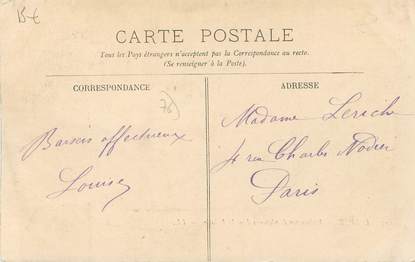 15 €
CARTE POSTALE
Tous les Pays étrangers n'acceptent pas la Correspondance au recto.
(Se renseigner à la Poste).
CORRESPONDANCE
76
Baisers affectueux
Louise
ADRESSE
Madame Lerich
4 rue Charles Nodier
Paris